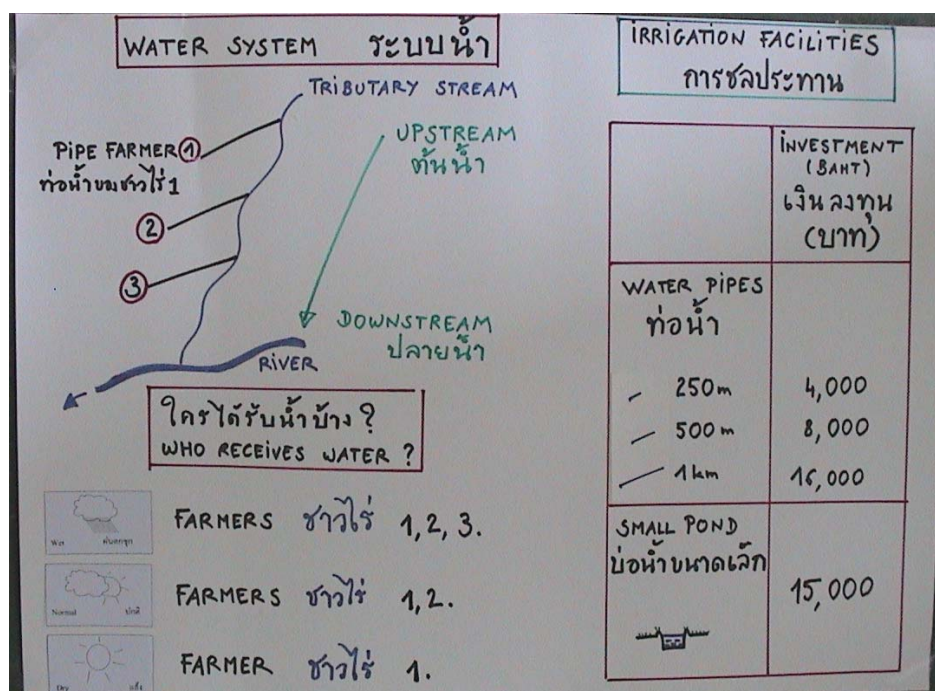 WATER SYSTEM ระบบน้ำ
TRIBUTARY STREAM
PIPE FARMER ①
ท่อน้ำของชาวไร่ 1
②
③
UPSTREAM
ต้นน้ำ
DOWNSTREAM
ปลายน้ำ
RIVER
ใครได้รับน้ำบ้าง ?
WHO RECEIVES WATER ?
Wet ฝนตกชุก
FARMERS ชาวไร่ 1, 2, 3.
Normal ปกติ
FARMERS ชาวไร่ 1, 2.
Dry แล้ง
FARMER ชาวไร่ 1.
IRRIGATION FACILITIES
การชลประทาน
INVESTMENT
(BAHT)
เงินลงทุน
(บาท)
WATER PIPES
ท่อน้ำ
250 m 4,000
500 m 8,000
1 km 16,000
SMALL POND
บ่อน้ำขนาดเล็ก
15,000